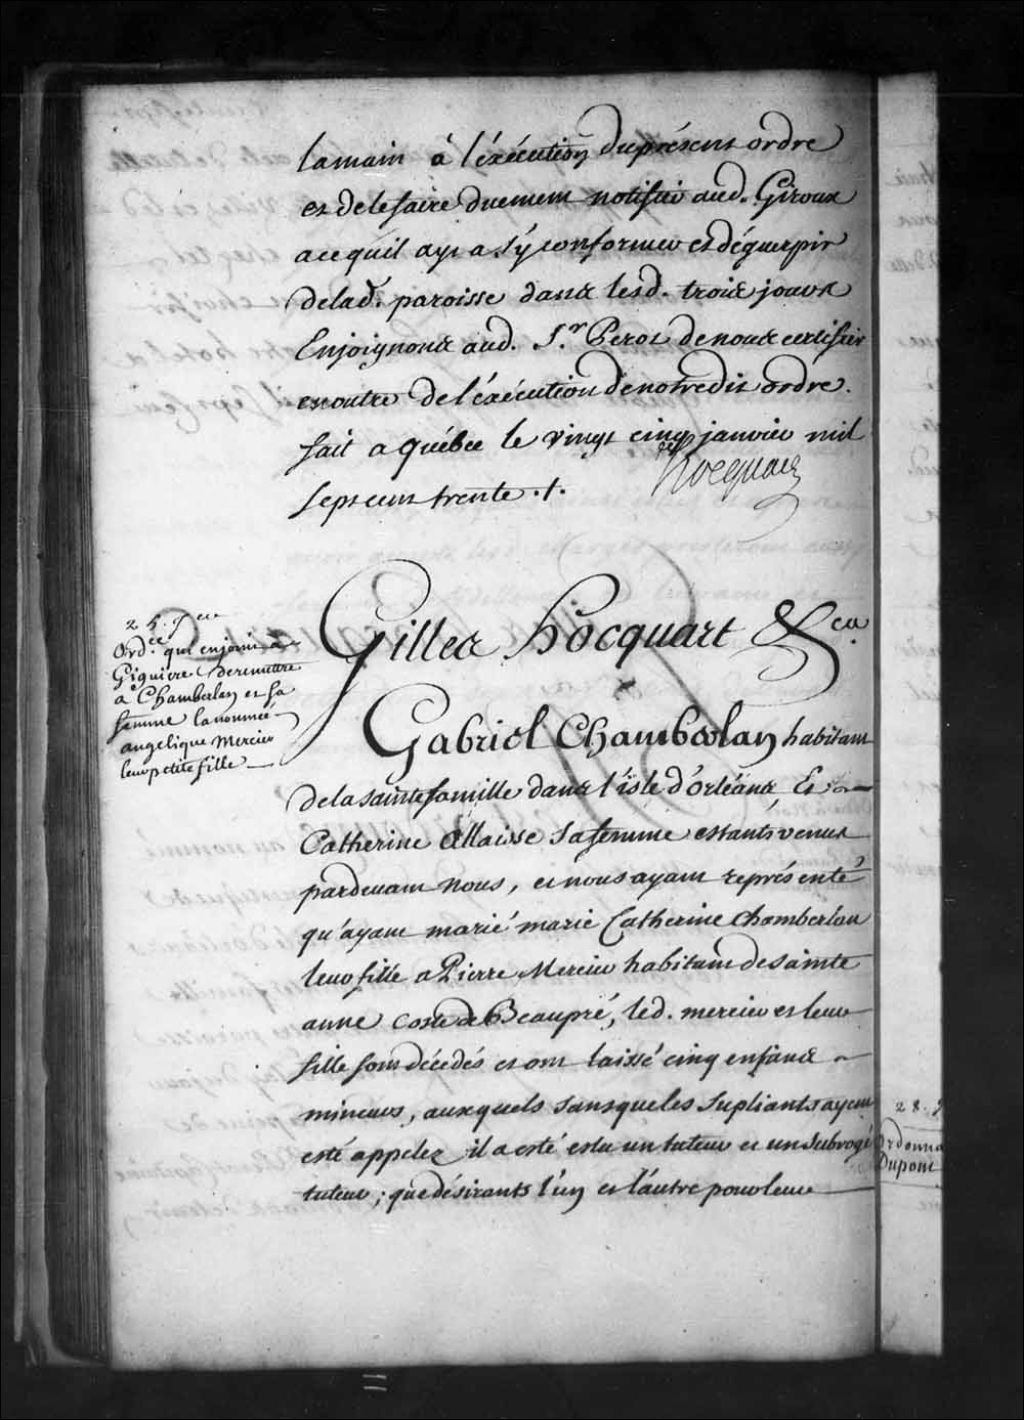 la main à l'éxécution du présent ordre
et de le faire duement notifier aud. Giroux
a ce quil ayt a s'y conformer et déguerpir
de lad. paroisse dans lesd. trois jours
Enjoignons aud. S.r Perot de nous certifier
en outre de l'éxécution de notredit ordre.
fait a québec le vingt cinq janvier mil
sept cent trente ./.
Hocquart
25. Jer
Ord.ce qui enjoint a
Giguiere de remettre
a Chamberlan et sa
femme la nommée
angelique Mercier
leur petite fille
Gilles hocquart &ca
Gabriel Chamberlan habitant
de la sainte famille dans l'isle d'orléans Et
Catherine Allaisse sa femme estants venus
pardevant nous, et nous ayant représenté
qu'ayant marié marie Catherine Chamberlan
leur fille a Pierre Mercier habitant de sainte
anne coste de Beaupré, led. mercier et leur
fille sont décedés et ont laissé cinq enfans
mineurs, auxquels sans que les supliants ayent
esté appelez il a esté eslu un tuteur et un subrogé
tuteur; que désirants l'un et l'autre pour leur
28. J
Ordonna
Dupont